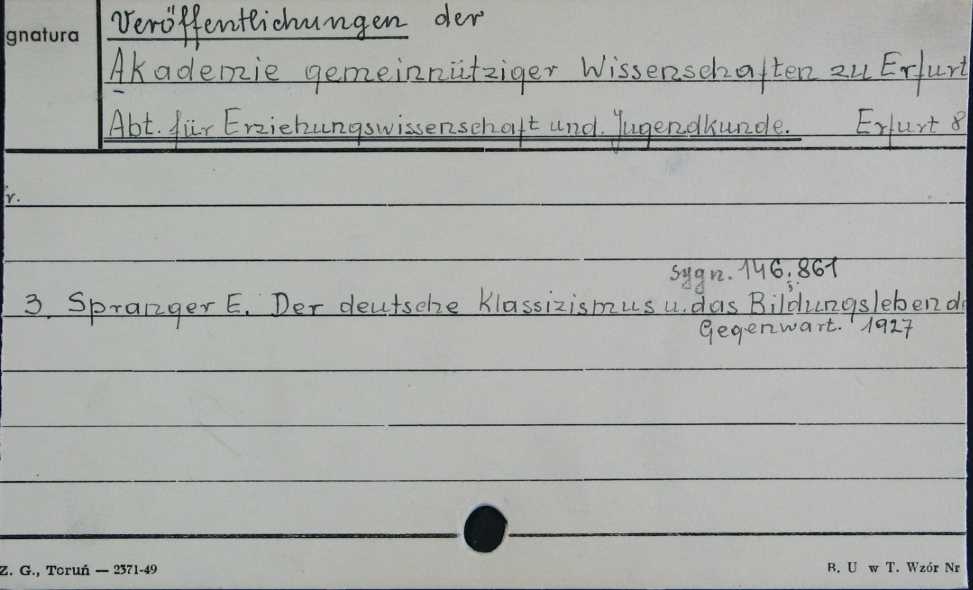 gnatura
Veröffentlichungen der
Akademie gemeinnütziger Wissenschaften zu Erfurt
Abt. für Erziehungswissenschaft und Jugendkunde. Erfurt 8
r.
sygn. 146.861
3. Spranger E. Der deutsche Klassizismus u. das Bildungsleben d
Gegenwart. 1927
Z. G., Toruń — 2371-49
B. U w T. Wzór Nr